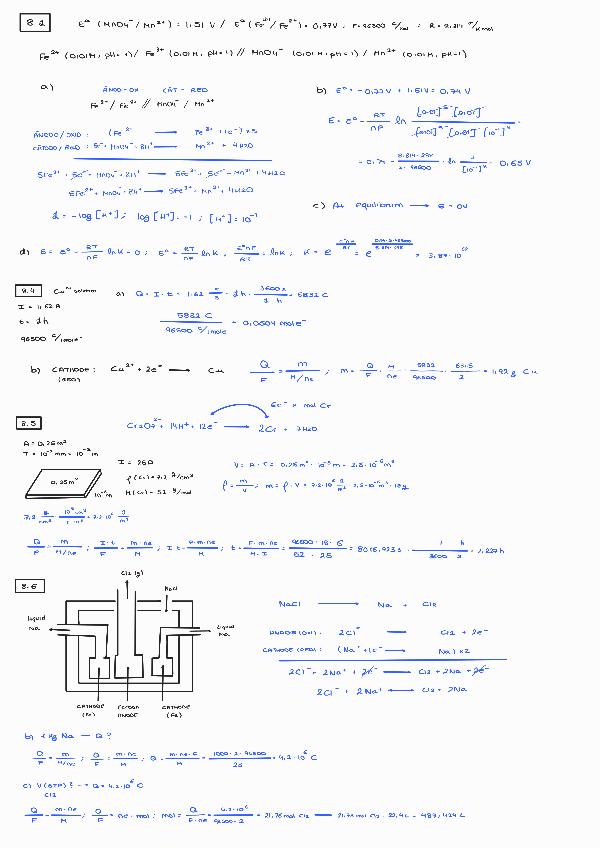 8.2 E° (MnO4⁻/Mn²⁺) = 1.51 V / E° (Fe³⁺/Fe²⁺) = 0,77V. F=96500 C/mol ; R = 8.314 J/K mol
Fe²⁺ (0,01M, pH=1) / Fe³⁺ (0,01M, pH=1) // MnO4⁻ (0,01M, pH=1) / Mn²⁺ (0,01M, pH=1)
a) ÀNOD-OX CÀT-RED
Fe²⁺ / Fe³⁺ // MnO4⁻ / Mn²⁺
ÀNODE/OXID : (Fe²⁺ → Fe³⁺ + 1e⁻) x5
CÀTODE/RED : 5e⁻ + MnO4⁻ + 8H⁺ → Mn²⁺ + 4H2O
5Fe²⁺ + 5e⁻ + MnO4⁻ + 8H⁺ → 5Fe³⁺ + 5e⁻ + Mn²⁺ + 4H2O
5Fe²⁺ + MnO4⁻ + 8H⁺ → 5Fe³⁺ + Mn²⁺ + 4H2O
1 = -log [H⁺] ; log [H⁺] = -1 ; [H⁺] = 10⁻¹
b) E° = -0,77V + 1.51V = 0,74 V
E = E° - RT/nF ln
= 0.74 - ln = 0,65 V
c) At equilibrium → E = 0V
d) E = E° - RT/nF lnK = 0 ; E° = RT/nF lnK ; E°nF/RT = lnK ; K = e
8.4 Cu²⁺ solution a) Q = I · t = 1.62 C/s · 1h · 3600s/1h = 5832 C
I = 1,62 A
t = 1h
96500 C/mol e⁻
5832 C / 96500 C/mole = 0,0604 mol e⁻
b) CATHODE : Cu²⁺ + 2e⁻ → Cu Q/F = m/M/ne ; m = Q/F · M/ne = 5832/96500 · 63,5/2 = 1,92g Cu
(RED)
6e⁻ x mol Cr
8.5 Cr2O7²⁻ + 14H⁺ + 12e⁻ → 2Cr + 7H2O
A = 0,25m²
T = 10⁻² mm = 10⁻⁵ m
I = 25A
ρ(Cr) = 7.2 g/cm³
M(Cr) = 52 g/mol
0,25m²
10⁻⁵m
V = A · T = 0,25m² · 10⁻⁵ m = 2,5 · 10⁻⁶ m³
ρ = m/V ; m = ρ · V = 7.2·10⁶ g/m³ · 2,5·10⁻⁶m³ = 18g
7,2 g/cm³ · 10⁶cm³/1m³ = 7.2·10⁶ g/m³
Q/F = m/M/ne ; I·t/F = m·ne/M ; I t = F·m·ne/M ; t = F·m·ne/M·I = 96500·18·6/52·25 = 8016,923 s · 1 h/3600 s = 2,227 h
8.6 Cl2 (g)
NaCl
liquid Na
liquid Na
CATHODE (Fe)
CARBON ANODE
CATHODE (Fe)
NaCl → Na + Cl2
ANODE (OX) : 2Cl⁻ → Cl2 + 2e⁻
CATHODE (RED) : (Na⁺ + 1e⁻ → Na) x2
2Cl⁻ + 2Na⁺ + 2e⁻ → Cl2 + 2Na + 2e⁻
2Cl⁻ + 2Na⁺ → Cl2 + 2Na
b) 1 Kg Na → Q ?
Q/F = m/M/ne ; Q/F = m·ne/M ; Q = m·ne·F/M = 1000·1·96500/23 = 4.2·10⁶ C
c) V(STP)? → Q = 4.2·10⁶ C
Cl2
Q/F = m·ne/M ; Q/F = ne · mol ; mol = Q/F·ne = 4.2·10⁶/96500·2 = 21.76 mol Cl2 → 21.76 mol Cl2 · 22,4L = 487,424 L